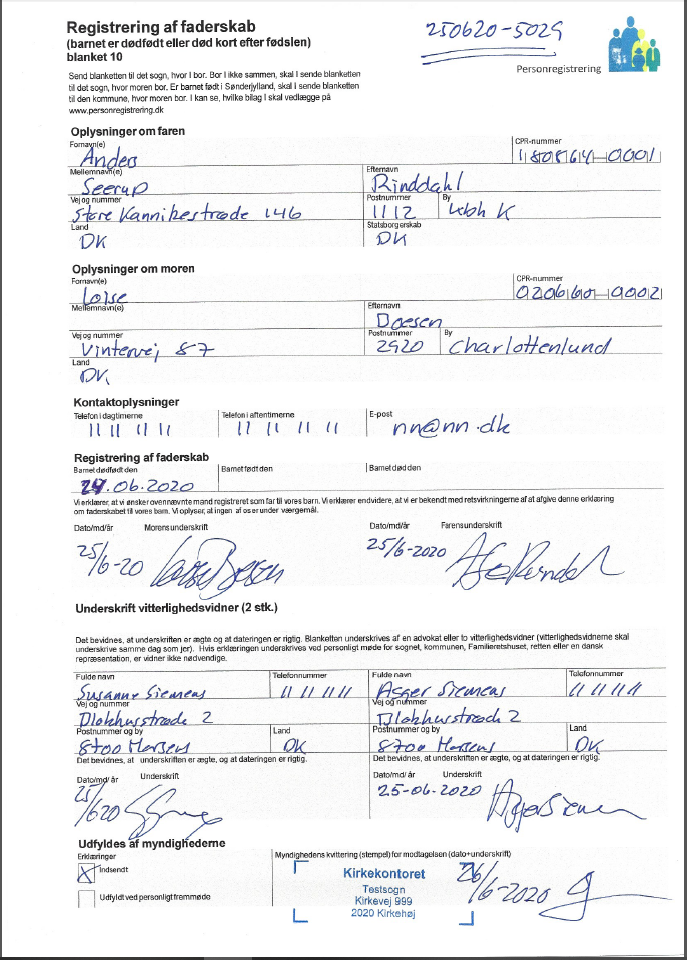 Registrering af faderskab
(barnet er dødfødt eller død kort efter fødslen)
blanket 10
250620-5029
Personregistrering
Send blanketten til det sogn, hvor I bor. Bor I ikke sammen, skal I sende blanketten
til det sogn, hvor moren bor. Er barnet født i Sønderjylland, skal I sende blanketten
til den kommune, hvor moren bor. I kan se, hvilke bilag I skal vedlægge på
www.personregistrering.dk
Oplysninger om faren
Fornavn(e) CPR-nummer
Anders 180864-0001
Mellemnavn(e) Efternavn
Seerup Rinddahl
Vej og nummer Postnummer By
Store Kannikestræde 146 1112 Kbh K
Land Statsborgerskab
DK DK
Oplysninger om moren
Fornavn(e) CPR-nummer
Loise 020660-0002
Mellemnavn(e) Efternavn
Doesen
Vej og nummer Postnummer By
Vintervej 87 2920 Charlottenlund
Land
DK
Kontaktoplysninger
Telefon i dagtimerne Telefon i aftentimerne E-post
11 11 11 11 11 11 11 11 nn@nn.dk
Registrering af faderskab
Barnet dødfødt den Barnet født den Barnet død den
24.06.2020
Vi erklærer, at vi ønsker ovennævnte mand registreret som far til vores barn. Vi erklærer endvidere, at vi er bekendt med retsvirkningerne af at afgive denne erklæring
om faderskabet til vores barn. Vi oplyser, at ingen af os er under værgemål.
Dato/md/år Morens underskrift Dato/md/år Farens underskrift
25/6-20 25/6-2020
Underskrift vitterlighedsvidner (2 stk.)
Det bevidnes, at underskriften er ægte og at dateringen er rigtig. Blanketten underskrives af en advokat eller to vitterlighedsvidner (vitterlighedsvidnerne skal
underskrive samme dag som jer). Hvis erklæringen underskrives ved personligt møde for sognet, kommunen, Familieretshuset, retten eller en dansk
repræsentation, er vidner ikke nødvendige.
Fulde navn Telefonnummer Fulde navn Telefonnummer
Susanne Siemens 11 11 11 11 Asger Siemens 11 11 11 11
Vej og nummer Vej og nummer
Blokhusstræde 2 Blokhusstræde 2
Postnummer og by Land Postnummer og by Land
8700 Horsens DK 8700 Horsens DK
Det bevidnes, at underskriften er ægte, og at dateringen er rigtig. Det bevidnes, at underskriften er ægte, og at dateringen er rigtig.
Dato/md/år Underskrift Dato/md/år Underskrift
25/620 25-06-2020 Asger Siemens
Udfyldes af myndighederne
Erklæringer Myndighedens kvittering (stempel) for modtagelsen (dato+underskrift)
X Indsendt
Udfyldt ved personligt fremmøde
Kirkekontoret
Testsogn
Kirkevej 999
2020 Kirkehøj
26/6-2020